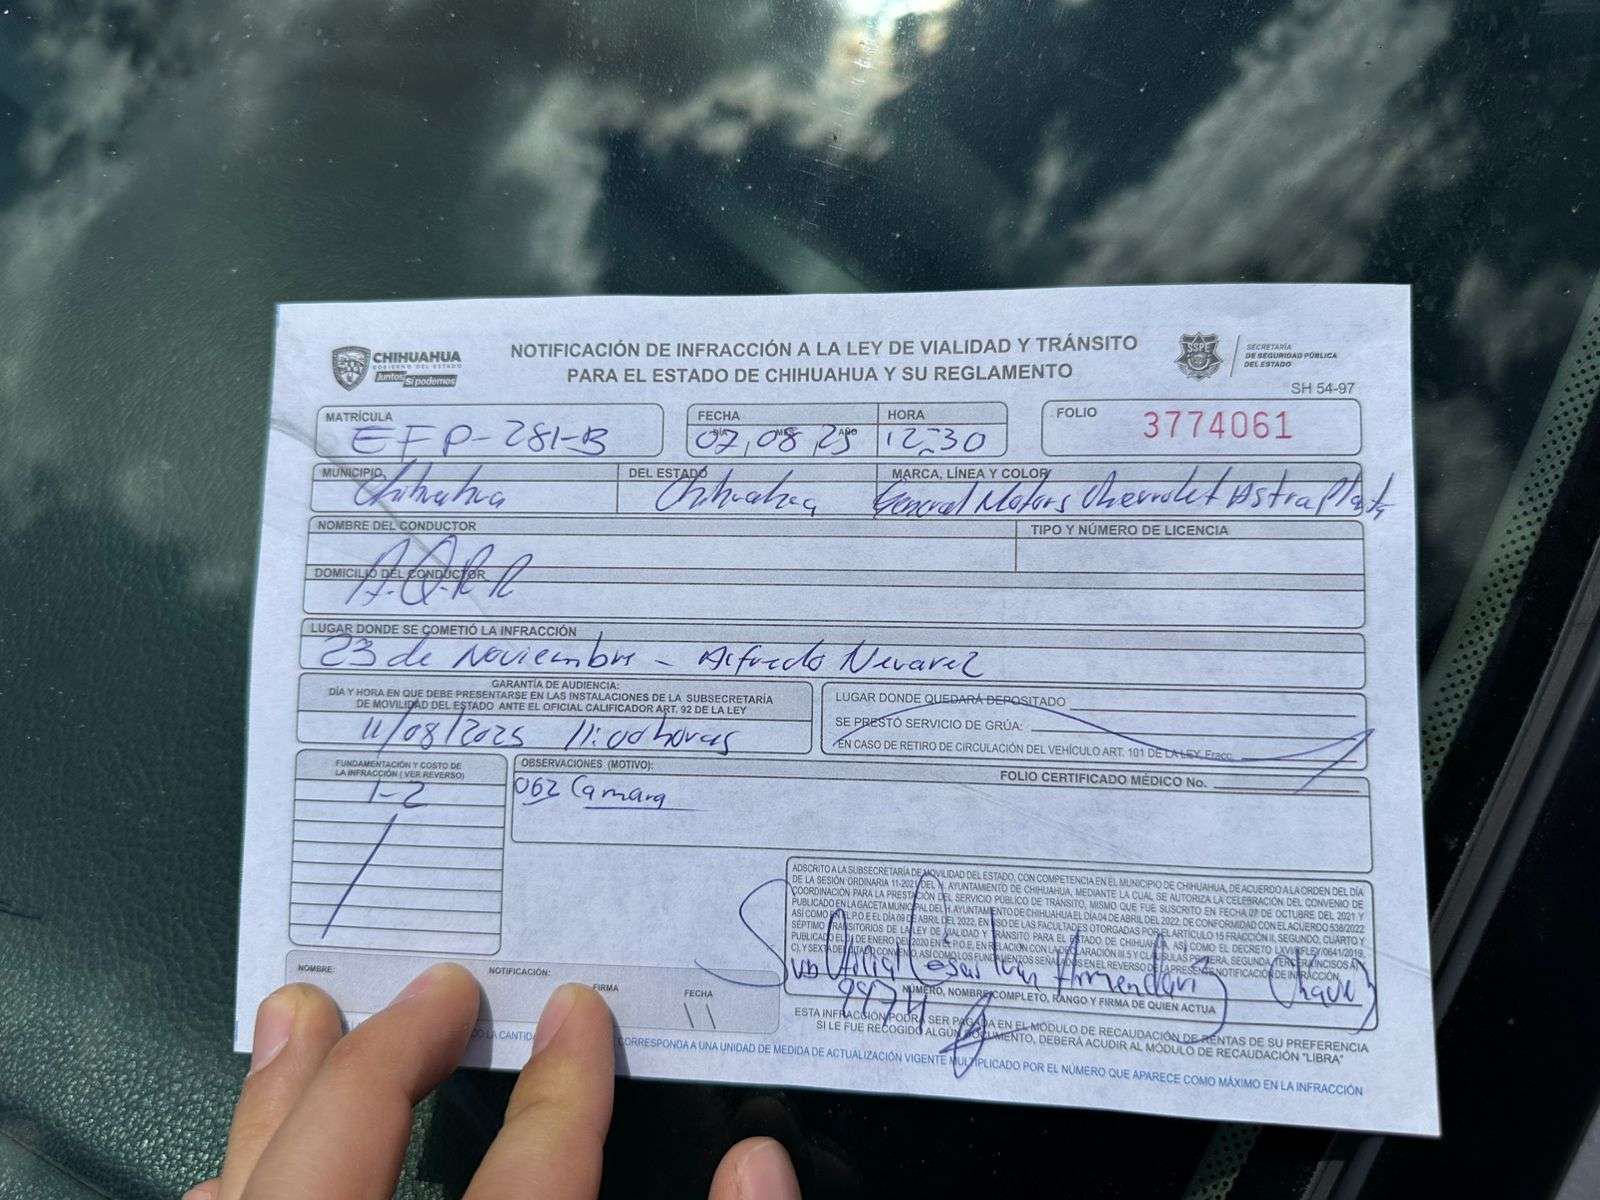 CHIHUAHUA
GOBIERNO DEL ESTADO
Juntos Sí podemos
NOTIFICACIÓN DE INFRACCIÓN A LA LEY DE VIALIDAD Y TRÁNSITO
PARA EL ESTADO DE CHIHUAHUA Y SU REGLAMENTO
SSPE
SECRETARÍA
DE SEGURIDAD PÚBLICA
DEL ESTADO
SH 54-97
MATRÍCULA
EFP-281-B
FECHA
DÍA MES AÑO
07,08,25
HORA
12:30
FOLIO
3774061
MUNICIPIO
Chihuahua
DEL ESTADO
Chihuahua
MARCA, LÍNEA Y COLOR
General Motors Chevrolet Astra Plata
NOMBRE DEL CONDUCTOR
TIPO Y NÚMERO DE LICENCIA
DOMICILIO DEL CONDUCTOR
A.Q.R.R
LUGAR DONDE SE COMETIÓ LA INFRACCIÓN
23 de Noviembre - Alfredo Nevarez
GARANTÍA DE AUDIENCIA:
DÍA Y HORA EN QUE DEBE PRESENTARSE EN LAS INSTALACIONES DE LA SUBSECRETARÍA
DE MOVILIDAD DEL ESTADO ANTE EL OFICIAL CALIFICADOR ART. 92 DE LA LEY
11/08/2025 11:00 horas
LUGAR DONDE QUEDARÁ DEPOSITADO
SE PRESTÓ SERVICIO DE GRÚA:
EN CASO DE RETIRO DE CIRCULACIÓN DEL VEHÍCULO ART. 101 DE LA LEY, Fracc.
FUNDAMENTACIÓN Y COSTO DE
LA INFRACCIÓN (VER REVERSO)
1-2
OBSERVACIONES (MOTIVO):
FOLIO CERTIFICADO MÉDICO No.
062 Camara
ADSCRITO A LA SUBSECRETARÍA DE MOVILIDAD DEL ESTADO, CON COMPETENCIA EN EL MUNICIPIO DE CHIHUAHUA, DE ACUERDO A LA ORDEN DEL DÍA
DE LA SESIÓN ORDINARIA 11-2021 DEL H. AYUNTAMIENTO DE CHIHUAHUA, MEDIANTE LA CUAL SE AUTORIZA LA CELEBRACIÓN DEL CONVENIO DE
COORDINACIÓN PARA LA PRESTACIÓN DEL SERVICIO PÚBLICO DE TRÁNSITO, MISMO QUE FUE SUSCRITO EN FECHA 07 DE OCTUBRE DEL 2021 Y
PUBLICADO EN LA GACETA MUNICIPAL DEL H. AYUNTAMIENTO DE CHIHUAHUA EL DÍA 04 DE ABRIL DE 2022, DE CONFORMIDAD CON EL ACUERDO 538/2022
ASÍ COMO EN EL P.O.E EL DÍA 09 DE ABRIL DE 2022, EN USO DE LAS FACULTADES OTORGADAS POR EL ARTICULO 15 FRACCIÓN II, SEGUNDO, CUARTO Y
SÉPTIMO TRANSITORIOS DE LA LEY DE VIALIDAD Y TRÁNSITO PARA EL ESTADO DE CHIHUAHUA, ASÍ COMO EL DECRETO
PUBLICADO EL DE ENERO DE 2020 EN EL P.O.E, EN RELACIÓN CON LA DECLARACIÓN III.5 Y CLÁUSULAS PRIMERA, SEGUNDA, TERCERA
Y SEXTA DEL CITADO CONVENIO, ASÍ COMO LOS FUNDAMENTOS SEÑALADOS EN EL REVERSO DE LA PRESENTE NOTIFICACIÓN DE INFRACCIÓN.
Sub Oficial Cesar Ivan Armendariz Chavez
9974
NUMERO, NOMBRE COMPLETO, RANGO Y FIRMA DE QUIEN ACTUA
NOMBRE:
NOTIFICACIÓN:
FIRMA
FECHA
ESTA INFRACCIÓN PODRÁ SER PAGADA EN EL MÓDULO DE RECAUDACIÓN DE RENTAS DE SU PREFERENCIA
SI LE FUE RECOGIDO ALGÚN DOCUMENTO, DEBERÁ ACUDIR AL MÓDULO DE RECAUDACIÓN "LIBRA"
LA CANTIDAD CORRESPONDA A UNA UNIDAD DE MEDIDA DE ACTUALIZACIÓN VIGENTE MULTIPLICADO POR EL NÚMERO QUE APARECE COMO MÁXIMO EN LA INFRACCIÓN